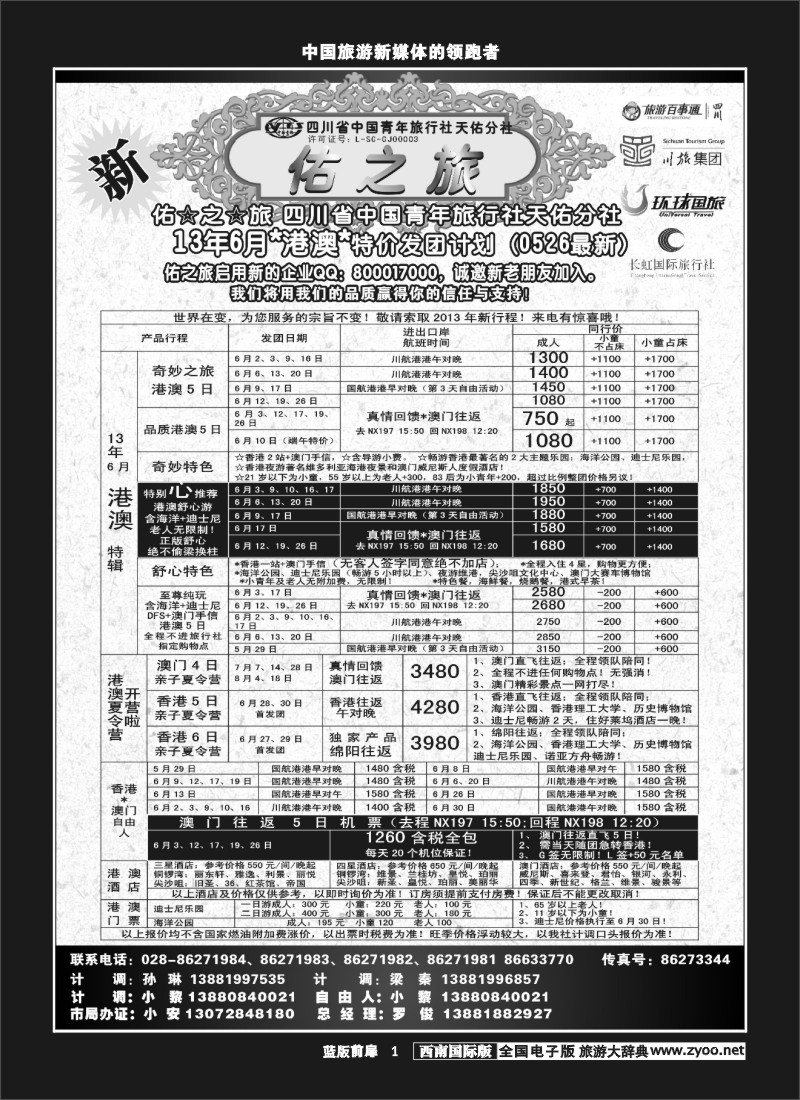 中国旅游新媒体的领跑者
新
四川省中国青年旅行社天佑分社
许可证号：L-SC-GJ00003
佑之旅
旅游百事通 四川
TRAVELLING BESTONE
Sichuan Tourism Group
川旅集团
环球国旅
UniVersal Travel
长虹国际旅行社
佑☆之☆旅 四川省中国青年旅行社天佑分社
13年6月*港澳*特价发团计划（0526最新）
佑之旅启用新的企业QQ：800017000，诚邀新老朋友加入。
我们将用我们的品质赢得你的信任与支持！
世界在变，为您服务的宗旨不变！敬请索取 2013 年新行程！来电有惊喜哦！
产品行程 发团日期 进出口岸 航班时间 同行价
成人 小童不占床 小童占床
13年6月 港澳 特辑
奇妙之旅 港澳 5 日
6 月 2、3、9、16 日 川航港港午对晚 1300 +1100 +1700
6 月 6、13、20 日 川航港港午对晚 1400 +1100 +1700
6 月 9、17 日 国航港港早对晚（第 3 天自由活动） 1450 +1100 +1700
6 月 12、19、26 日 真情回馈*澳门往返 去 NX197 15:50 回 NX198 12:20 1080 +1100 +1700
品质港澳 5 日
6 月 3、12、17、19、26 日 750 起 +1100 +1700
6 月 10 日（端午特价） 1080 +1100 +1700
奇妙特色
☆香港 2 站+澳门手信，☆含导游小费。 ☆畅游香港最著名的 2 大主题乐园，海洋公园、迪士尼乐园，
☆香港夜游著名维多利亚海港夜景和澳门威尼斯人度假酒店！
☆21 岁以下为小童，55 岁以上为老人+300，83 后为小青年+200，超过比例整团价格另议！
特别心推荐
港澳舒心游
含海洋+迪士尼
老人无限制！
正版舒心
绝不偷梁换柱
6 月 3、9、10、16、17 川航港港午对晚 1850 +700 +1400
6 月 6、13、20 日 川航港港午对晚 1950 +700 +1400
6 月 9、17 日 国航港港早对晚（第 3 天自由活动） 1880 +700 +1400
6 月 17 日 真情回馈*澳门往返 去 NX197 15:50 回 NX198 12:20 1580 +700 +1400
6 月 12、19、26 日 1680 +700 +1400
舒心特色
*香港一站+澳门手信（无客人签字同意绝不加店）； *全程入住 4 星，购物更方便；
*海洋公园、迪士尼乐园（畅游 5 小时以上）、夜游维港，尖沙咀文化中心、澳门大赛车博物馆
*小青年及老人无附加费，无限制！ *特色餐，海鲜餐，烧鹅餐，港式早茶！
至尊纯玩
含海洋+迪士尼
DFS+澳门手信
港澳 5 日
全程不进旅行社
指定购物点
6 月 3、17 日 真情回馈*澳门往返 2580 -200 +600
6 月 12、19、26 日 去 NX197 15:50 回 NX198 12:20 2680 -200 +600
6 月 2、3、9、10、16、17 日 川航港港午对晚 2750 -200 +600
6 月 6、13、20 日 川航港港午对晚 2850 -200 +600
5 月 29 日 国航港港早对晚（第 3 天自由活动） 3150 -200 +600
港澳夏令营 开营啦
澳门 4 日 亲子夏令营 7 月 7、14、28 日 8 月 4、18 日 真情回馈 澳门往返 3480
1、澳门直飞往返；全程领队陪同！
2、全程不进任何购物点！无强消！
3、澳门精彩景点一网打尽！
香港 5 日 亲子夏令营 6 月 28、30 日 首发团 香港往返 午对晚 4280
1、香港直飞往返；全程领队陪同；
2、海洋公园、香港理工大学、历史博物馆
3、迪士尼畅游 2 天，住好莱坞酒店一晚！
香港 6 日 亲子夏令营 6 月 27、29 日 首发团 独家产品 绵阳往返 3980
1、绵阳往返；全程领队陪同；
2、海洋公园、香港理工大学、历史博物馆
迪士尼乐园、诺亚方舟畅游！
香港*澳门自由人
5 月 29 日 国航港港早对晚 1480 含税 6 月 8 日 国航港港早对午 1580 含税
6 月 9、12、17、19 日 国航港港早对晚 1480 含税 6 月 6、20 日 川航港港午对晚 1480 含税
6 月 13 日 国航港港早对午 1580 含税 6 月 26 日 国航港港早对晚 1580 含税
6 月 2、3、9、10、16 川航港港午对晚 1400 含税 6 月 30 日 国航港港早对晚 1580 含税
澳门往返 5 日机票（去程NX197 15:50;回程NX198 12:20）
6 月 3、12、17、19、26 日 1260 含税全包 每天 20 个机位保证！
1、 澳门往返直飞 5 日！
2、 需当天随团急转香港！
3、 G 签无限制！L 签+50 元名单
港澳酒店
三星酒店：参考价格 550 元/间/晚起
铜锣湾：丽东轩、雅逸、利景、丽悦
尖沙咀：旧圣、36、红茶馆、帝国
四星酒店：参考价格 650 元/间/晚起
铜锣湾：维景、兰桂坊、皇悦、珀丽
尖沙咀：新圣、皇悦、珀丽、美丽华
澳门酒店：参考价格 550 元/间/晚起
威尼斯、喜来登、君怡、银河、永利、
四季、新世纪、格兰、维景、骏景等
以上酒店及价格仅供参考，以即时询价为准！订房须提前支付房费！保证后不能更改取消！
港澳门票
迪士尼乐园
一日游成人：300 元 小童：220 元 老人：100 元
二日游成人：400 元 小童：300 元 老人：180 元
海洋公园 成人：195 元 小童 120 老人：100
1、65 岁以上老人！
2、11 岁以下为小童！
3、迪士尼价格执行至 6 月 30 日！
以上报价均不含国家燃油附加费涨价，以出票时税费为准！旺季价格浮动较大，以我社计调口头报价为准！
联系电话：028-86271984、86271983、86271982、86271981 86633770 传真号：86273344
计 调：孙 琳 13881997535 计 调：梁 秦 13881996857
计 调：小 黎 13880840021 自 由 人：小 黎 13880840021
市局办证：小 安 13072848180 总 经 理：罗 俊 13881882927
蓝版前扉 1 西南国际版 全国电子版 旅游大辞典 www.zyoo.net